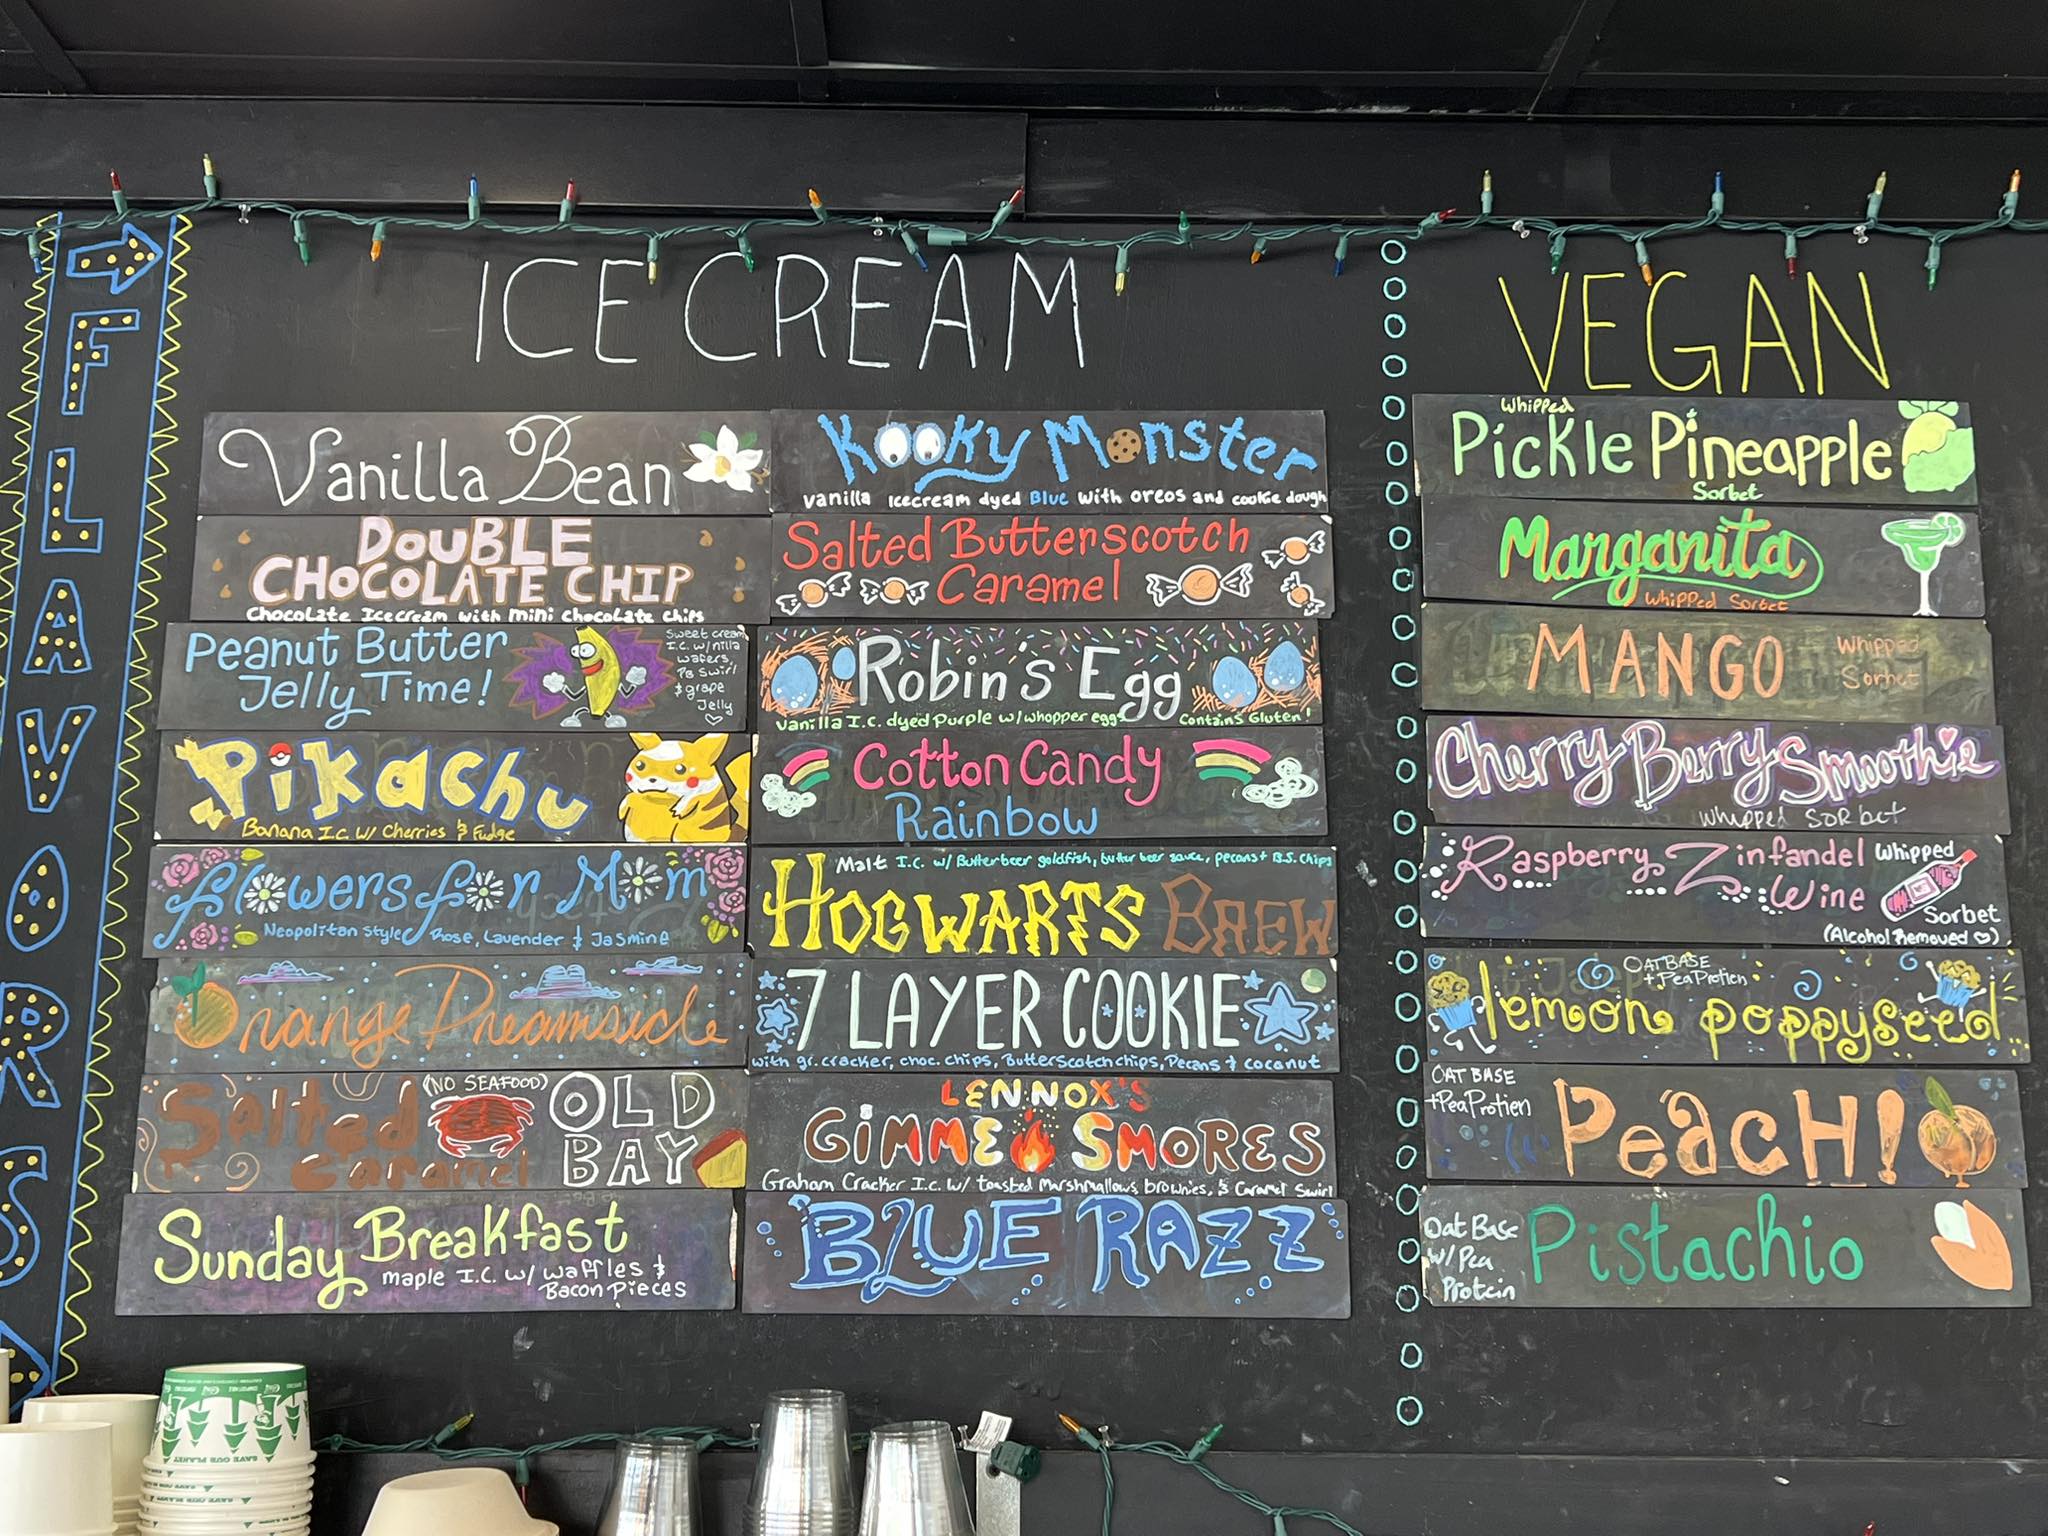 FLAVORS
ICE CREAM
Vanilla Bean
DOUBLE
CHOCOLATE CHIP
Chocolate Icecream with mini chocolate chips
Peanut Butter
Jelly Time!
Sweet cream
I.C. w/nilla
wafers,
PB swirl
& grape
Jelly
Pikachu
Banana I.C. w/ Cherries & Fudge
flowers for Mom
Neopolitan Style Rose, Lavender & Jasmine
Orange Dreamsicle
Salted
Caramel
(NO SEAFOOD)
OLD
BAY
Sunday Breakfast
maple I.C. w/ waffles &
Bacon Pieces
Kooky Monster
vanilla Icecream dyed Blue with oreos and cookie dough
Salted Butterscotch
Caramel
Robin's Egg
vanilla I.C. dyed Purple w/whopper eggs
Contains Gluten!
Cotton Candy
Rainbow
Malt I.C. w/ Butterbeer goldfish, butter beer sauce, pecans + B.S. Chips
HOGWARTS BREW
7 LAYER COOKIE
with gr. cracker, choc. chips, Butterscotch chips, Pecans & coconut
LENNOX'S
GIMME SMORES
Graham Cracker I.C. w/ toasted Marshmallows, brownies, & Caramel Swirl
BLUE RAZZ
VEGAN
Whipped
Pickle Pineapple
Sorbet
Margarita
Whipped Sorbet
MANGO
Whipped
Sorbet
Cherry Berry Smoothie
Whipped SORbet
Raspberry Zinfandel
Wine
Whipped
Sorbet
(Alcohol Removed)
OAT BASE
+ Pea Protien
lemon poppyseed
OAT BASE
+Pea Protien
PeacH!
Oat Base
w/ Pea
Protein
Pistachio
SAVE OUR PLANET